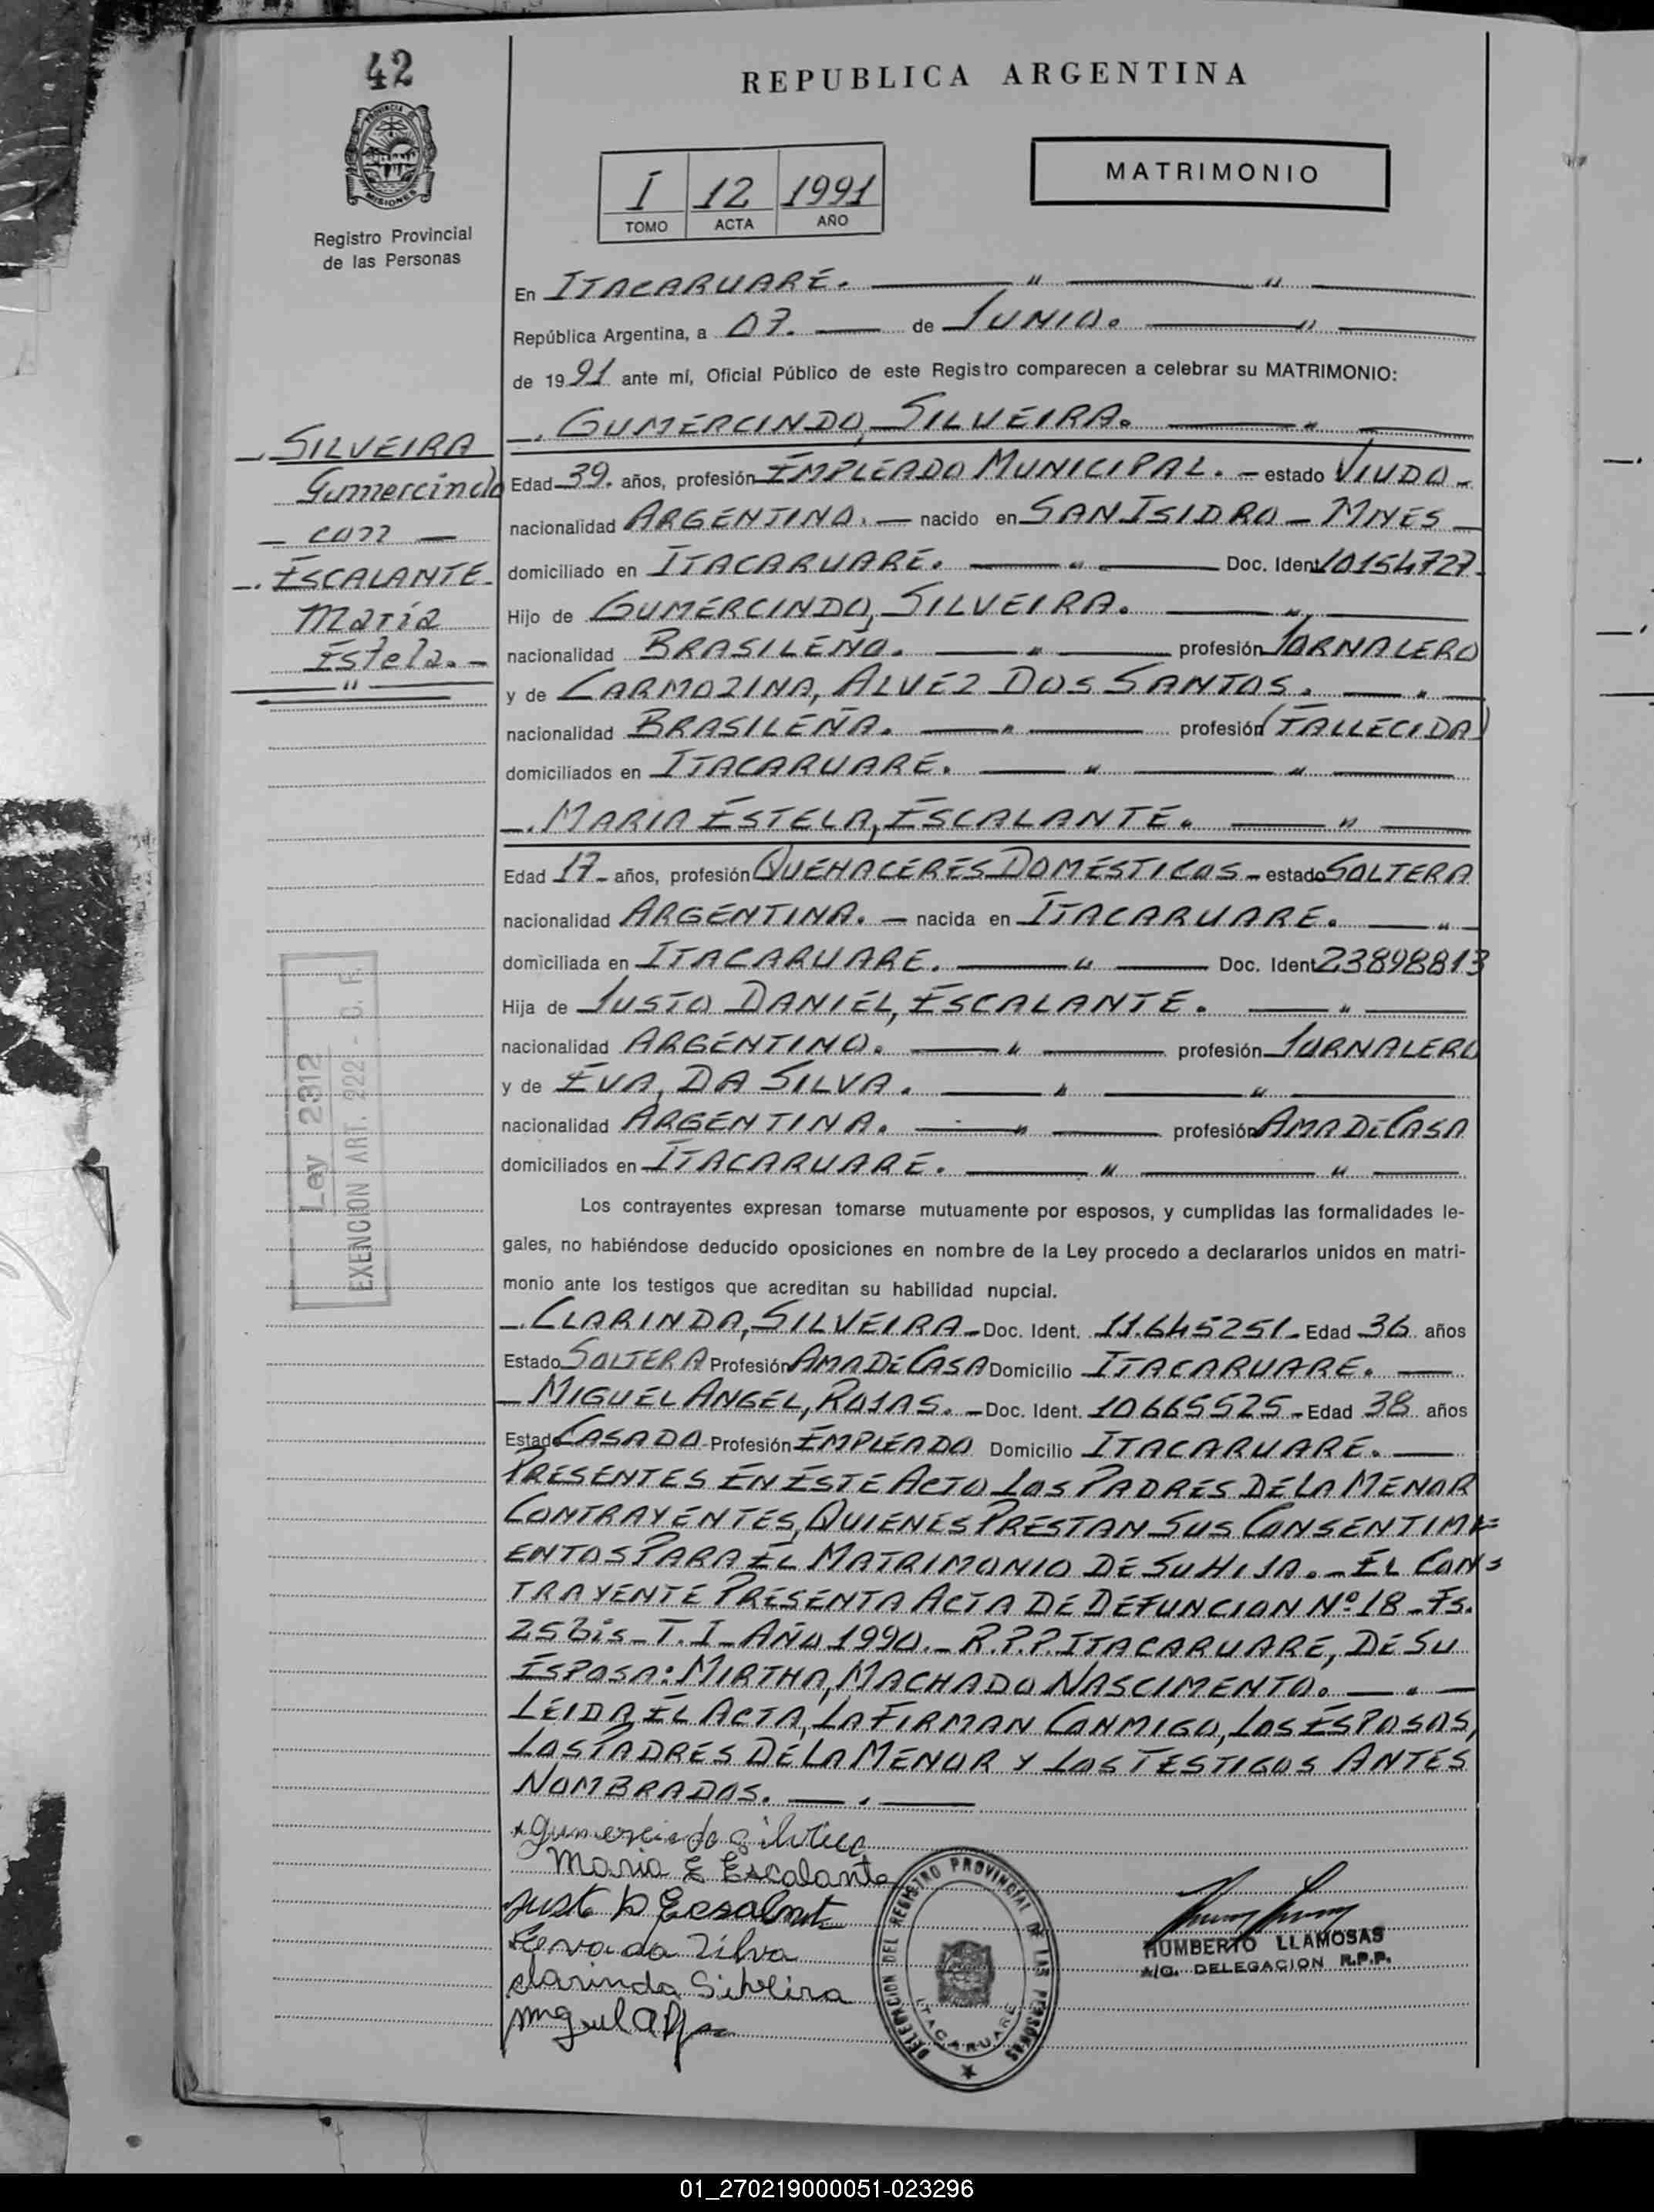 42
PROVINCIA DE
MISIONES
Registro Provincial
de las Personas
REPUBLICA ARGENTINA
I 12 1991
TOMO ACTA AÑO
MATRIMONIO
En ITACARUARE.
República Argentina, a 07. de JUNIO.
de 1991 ante mí, Oficial Público de este Registro comparecen a celebrar su MATRIMONIO:
SILVEIRA
Gumercindo
con
ESCALANTE
María
Estela.-
GUMERCINDO, SILVEIRA.
Edad 39. años, profesión EMPLEADO MUNICIPAL. - estado VIUDO-
nacionalidad ARGENTINO. - nacido en SAN ISIDRO - MNES
domiciliado en ITACARUARE. Doc. Ident 10154727
Hijo de GUMERCINDO, SILVEIRA.
nacionalidad BRASILEÑO. profesión JORNALERO
y de CARMOZINA, ALVEZ DOS SANTOS.
nacionalidad BRASILEÑA. profesión (FALLECIDA)
domiciliados en ITACARUARE.
MARIA ESTELA, ESCALANTE.
Edad 17- años, profesión QUEHACERES DOMESTICOS - estado SOLTERA
nacionalidad ARGENTINA. - nacida en ITACARUARE.
domiciliada en ITACARUARE. Doc. Ident 23898813
Hija de JUSTO DANIEL, ESCALANTE.
nacionalidad ARGENTINO. profesión JORNALERO
y de EVA, DA SILVA.
nacionalidad ARGENTINA. profesión AMA DE CASA
domiciliados en ITACARUARE.
Ley 2312
EXENCION ART. 222 - C. F.
Los contrayentes expresan tomarse mutuamente por esposos, y cumplidas las formalidades le-
gales, no habiéndose deducido oposiciones en nombre de la Ley procedo a declararlos unidos en matri-
monio ante los testigos que acreditan su habilidad nupcial.
CLARINDA, SILVEIRA - Doc. Ident. 11.645251- Edad 36 años
Estado SOLTERA Profesión AMA DE CASA Domicilio ITACARUARE.
MIGUEL ANGEL, ROJAS. - Doc. Ident. 10665525 - Edad 38 años
Estado CASADO - Profesión EMPLEADO Domicilio ITACARUARE.
PRESENTES EN ESTE ACTO LOS PADRES DE LA MENOR
CONTRAYENTES, QUIENES PRESTAN SUS CONSENTIMI=
ENTOS PARA EL MATRIMONIO DE SU HIJA. - EL CON=
TRAYENTE PRESENTA ACTA DE DEFUNCION Nº 18 - Fs.
25 Bis - T. I - AÑO 1990. - R.P.P. ITACARUARE, DE SU
ESPOSA: MIRTHA, MACHADO NASCIMENTO.
LEIDA, EL ACTA, LA FIRMAN CONMIGO, LOS ESPOSOS,
LOS PADRES DE LA MENOR Y LOS TESTIGOS ANTES
NOMBRADOS.
Gumercindo Silveira
Maria E Escalante
Justo D Escalante
Eva da Silva
Clarinda Silveira
Miguel A
DELEGACION DEL REGISTRO PROVINCIAL DE LAS PERSONAS
ITACARUARE
HUMBERTO LLAMOSAS
A/C. DELEGACION R.P.P.
01_270219000051-023296